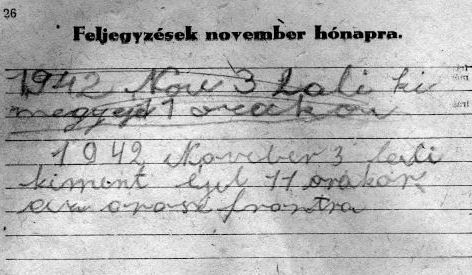 26
Feljegyzések november hónapra.
1942 Nov 3 Lali ki
1 orakor
1942 November 3 Lali
kiment éjel 11 orakor
az orosz frontra